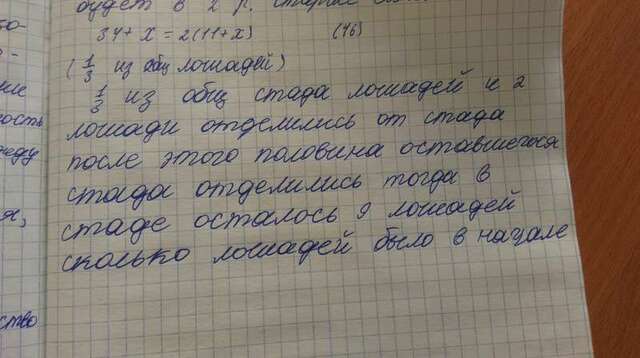 будет в 2 р. старше
то-
34 + х = 2(11+х) (46)
(1/3 из общ лошадей)
1/3 из общ стада лошадей и 2
лошади отделились от стада
после этого половина оставшегося
стада отделились тогда в
стаде осталось 9 лошадей
сколько лошадей было в начале
ие
ость
жду
я,
ство